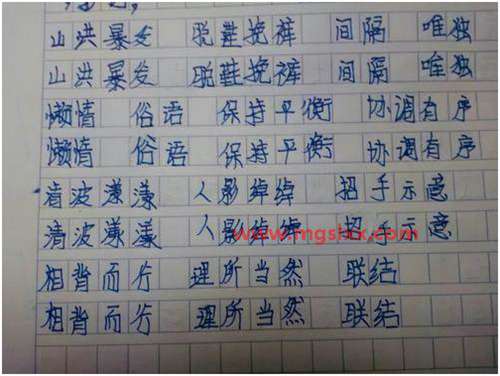 山洪暴发 脱鞋挽裤 间隔 唯独
山洪暴发 脱鞋挽裤 间隔 唯独
懒惰 俗语 保持平衡 协调有序
懒惰 俗语 保持平衡 协调有序
清波漾漾 人影绰绰 招手示意
清波漾漾 人影绰绰 招手示意
www.mgshx.com
相背而行 理所当然 联结
相背而行 理所当然 联结